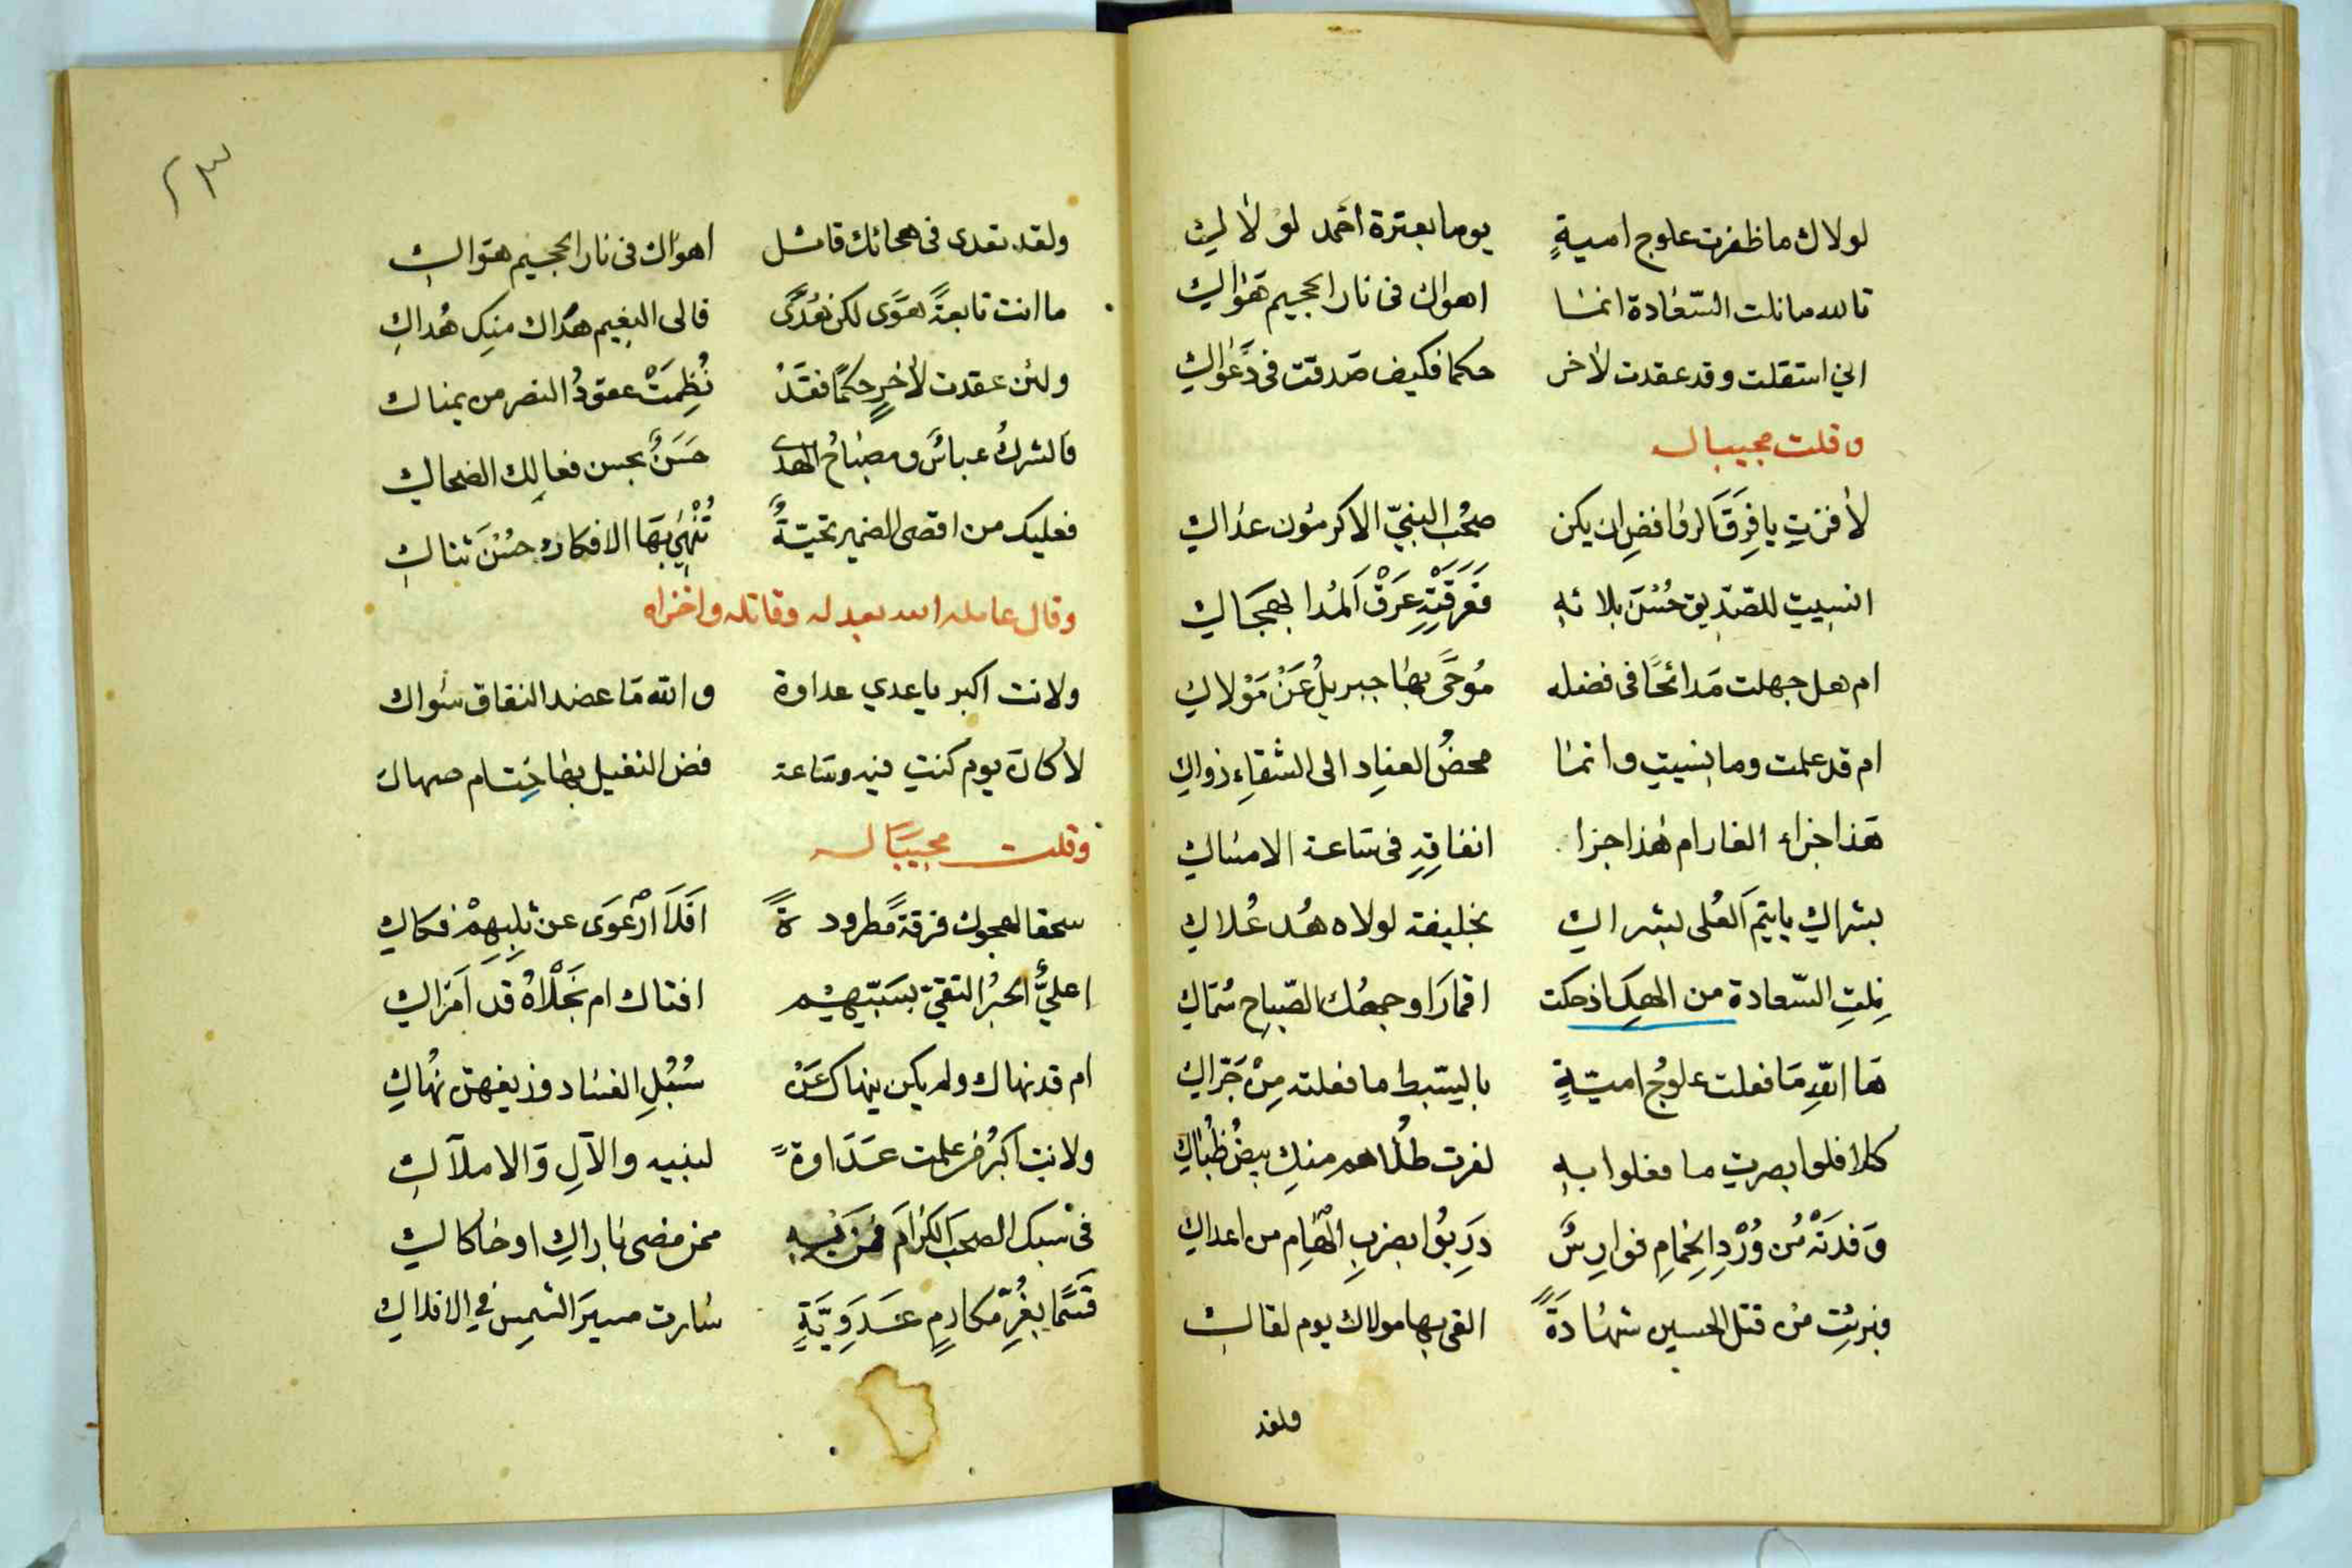 لولاك ما ظفرت علوج اميةٍ يوما بعترة احمد لولاكِ
تالله ما نلت السّعادة انما اهواك فى نار الجحيم هواكِ
انى استقلت وقد عقدت لاخر حكما فكيف صدقت فى دَعْواكِ
وقلت مجيبا له
لا فزتِ يا فِرَقَ الروافضِ ان يكن صحْب النبيّ الاكرمون عداكِ
انسيتِ للصّدّيق حُسْنَ بلائهِ فَغَرقْتِ عرَقْ المُدا بهجاكِ
ام هل جهلت مَدائحًا فى فضله مُوحًى بها جبريلُ عَنْ مَوْلاكِ
ام قد علمت وما نسيتِ وانما محضُ العنادِ الى الشقاءِ زواكِ
هذا جزاء الغار ام هذا جزا انفاقِهِ فى ساعة الامساكِ
بشراكِ يا يتم العُلى بشراكِ بخليفة لولاه هُد عُلاكِ
نِلتِ السّعادة من الهك اذ حكت اقمارَ اوجهك الصّباحِ سماكِ
ها اللهِ مَا فعلت علوجُ اميّةٍ بالسّبط ما فعلته مِنْ جَرّاكِ
كلا فلو ابصرتِ ما فعلوا بهِ لفرت طُلاهم منكِ بيضُ ظُباكِ
وَفدَتْهُ مْن وُرْدِ الحِمامِ فوارِسٌ دَرِبُوا بضربِ الْهَامِ من اعداكِ
وبرئتِ مْن قتل الحسين شهادةً القى بها مولاك يوم لقاكِ
ولقد
ولقد تعدى فى هجائك قائل اهواك فى نار الجحيم هواكِ
ما انت تابعةً هوًى لكن هُدًى فالى النعيم هداك منكِ هُداكِ
ولئن عقدت لاخرٍ حكمًا فقَدْ نُظِمَتْ عقودُ النصر من يمناك
فالشركُ عباسٌ ومصباحُ الهدى حَسَنٌ بحسن فعالِكِ الضحاكِ
فعليك من اقصى الضمير تحيّةً تُنْهِي بَهَا الافكار حُسْنَ ثناكِ
وقال عامله الله بعدله وقاتله واخزاه
ولانت اكبر يا عدي عداوة والله ما عضد النفاق سواك
لا كان يوم كنتِ فيه وساعة فض النفيل بها خِتام صهاك
وقلت مجيبا له
سحقا لهجوك فرقة مطرودةً افَلَا ارْعَوَى عن ثلبِهِمْ فكاكِ
اعليٌّ الحبْرُ التقيّ بسَبّهِم افتاك ام نَجْلَاهُ قَد اَمَراكِ
ام قد نهاك ولم يكن ينهاك عَنْ سُبُلِ الفساد وزيفهن نُهاكِ
ولانتِ اكبرُ من علمت عَدَاوةً لنبيه والآلِ والاملاكِ
فى سبك الصحبَ الكرامَ فمن بهِ ممن مضى باراكِ او حاكاكِ
قسَمًا بغُرِّ مكارمٍ عَدَوِيَّةٍ سارت مسيرَ الشمسِ في الافلاكِ